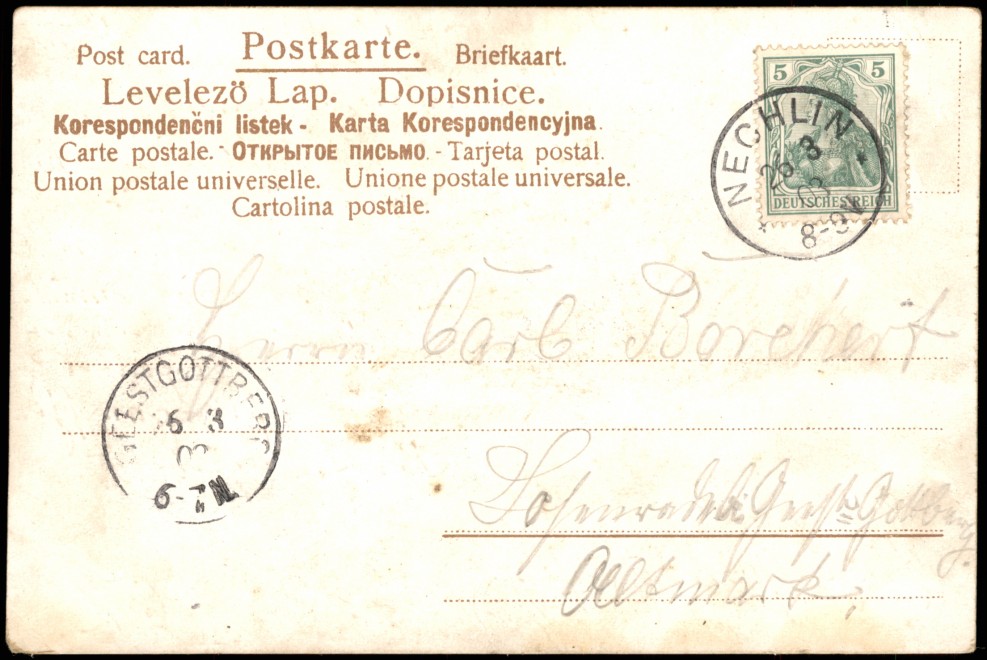 Post card. Postkarte. Briefkaart.
Levelezö Lap. Dopisnice.
Korespondenčni listek - Karta Korespondencyjna.
Carte postale. - Открытое письмо. - Tarjeta postal.
Union postale universelle. Unione postale universale.
Cartolina postale.
5 5
DEUTSCHES REICH
NECHLIN
26 3
03
8-9V
Herrn Carl Borchert
GEESTGOTTBERG
6 3
03
6-7 N.
Losenrade bei Geest-Gottberg
Altmark.